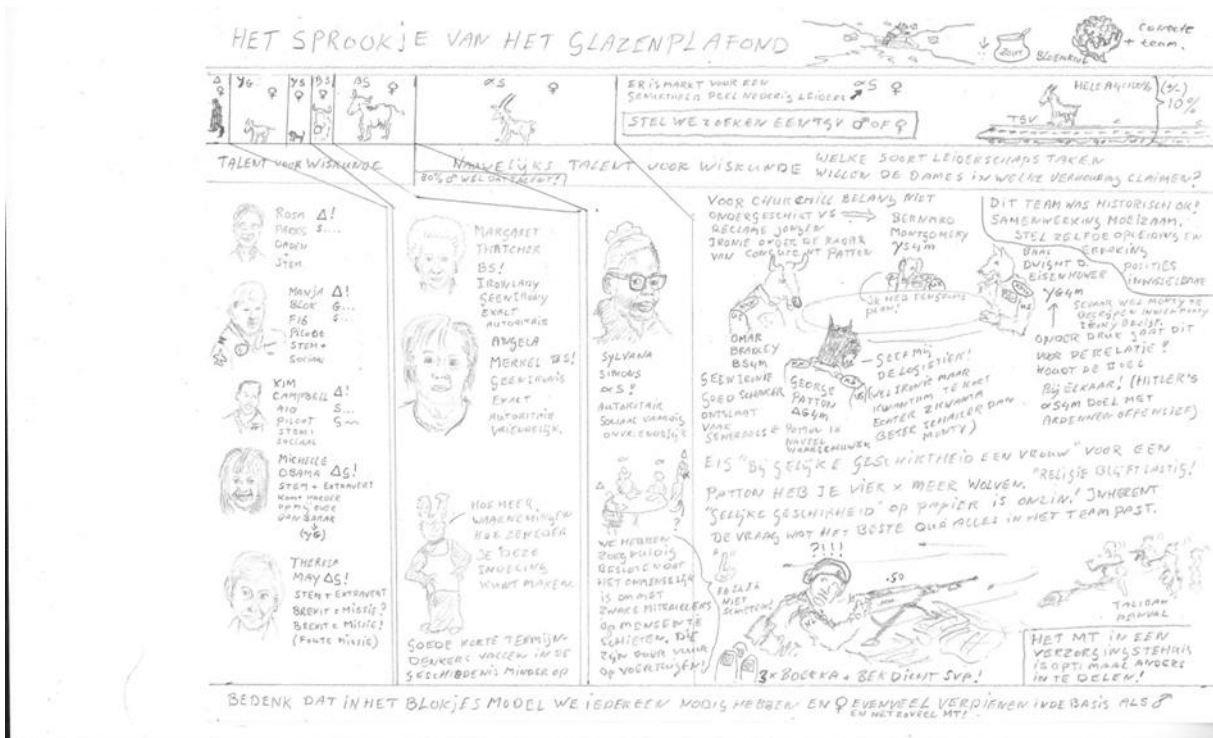 HET SPROOKJE VAN HET GLAZENPLAFOND
ZOUT
BLOEMKOOL
CORRECTE
+ TEAM.
Δ ♀
γG ♀
γS ♀
BS
BS ♀
αS ♀
ER IS MARKT VOOR EEN
DEEL
αS ♀
STEL WE ZOEKEN EEN TGV ♂ OF ♀
TGV
10%
TALENT VOOR WISKUNDE
NAUWELIJKS TALENT VOOR WISKUNDE
80% ♂ WEL DAT TALENT!
WELKE SOORT LEIDERSCHAPS TAKEN
WILLEN DE DAMES IN WELKE VERHOUDING CLAIMEN?
ROSA Δ!
PARKS S....
DADEN
+
STEM
MANJA Δ!
BLOK G...
F16 S...
PILOTE
STEM +
SOCIAAL
KIM
CAMPBELL Δ!
A10 S...
PILOOT G...
STEM!
SOCIAAL
MICHELLE
OBAMA ΔG!
STEM + EXTRAVERT
KOMT HARDER
OP MIJ OVER
DAN BARAK
(γG)
THERESA
MAY ΔG!
STEM + EXTRAVERT
BREXIT = MISSIE?
BREXIT = MISSIE!
(FOUTE MISSIE)
MARGARET
THATCHER
BS!
IRON LADY
GEEN IRONY
EXACT
AUTORITAIR
ANGELA
MERKEL BS!
GEEN IRONIE
EXACT
AUTORITAIR
VRIENDELIJK.
HOE MEER
WAARNEMINGEN
HOE ZEKERDER
JE DEZE
INDELING
KUNT MAKEN.
GOEDE KORTE TERMIJN-
DENKERS VALLEN IN DE
GESCHIEDENIS MINDER OP
SYLVANA
SIMONS
αS?
AUTORITAIR
SOCIAAL VAARDIG
ONVRIENDELIJK
WE HEBBEN
ZORGVULDIG
BESLOTEN DAT
HET ONMENSELIJK
IS OM MET
ZWARE MITRAILLEURS
OP MENSEN TE
SCHIETEN. DIE
ZIJN VOOR VUUR
OP VOERTUIGEN!
VOOR CHURCHILL BELANG NIET
ONDERGESCHIKT VS ⇒
RECLAME JONGEN
IRONIE ONDER DE RADAR
VAN CONCURRENT PATTON
BERNARD
MONTGOMERY
γS4M
DIT TEAM WAS HISTORISCH OK!
SAMENWERKING MOEIZAAM.
STEL ZELFDE OPLEIDING EN
ERVARING
BAAS
DWIGHT D.
EISENHOWER
γG4M
POSITIES
INWISSELBAAR
IK HEB EEN
PLAN!
OMAR
BRADLEY
BS4M
GEEN IRONIE
GOED SCHAKER
ONTSLAAT
VAAK
GENERAALS
GEORGE
PATTON
ΔG4M
GEEF MIJ
DE LOGISTIEK!
(WEL IRONIE MAAR
KWANTUM TE KORT
BETER SCHAKER DAN
MONTY)
ONDER DRUK GAAT DIT
VOOR DE RELATIE?
HOUDT DE BOEL
BIJ ELKAAR! (HITLER'S
αS4M DOEL MET
ARDENNEN OFFENSIEF)
EIS "BIJ GELIJKE GESCHIKTHEID EEN VROUW" VOOR EEN
PATTON HEB JE VIER X MEER WOLVEN.
"RELIGIE BLIJFT LASTIG!
"GELIJKE GESCHIKTHEID" OP PAPIER IS ONZIN! INHERENT
DE VRAAG WAT HET BESTE QUA ALLES IN HET TEAM PAST.
?!!!
.50
NIET
SCHIETEN
3X BOERKA + BEK DICHT SVP!
TALIBAN
HET MT IN EEN
VERZORGINGSTEHUIS
IS OPTIMAAL ANDERS
IN TE DELEN!
BEDENK DAT IN HET BLOKJES MODEL WE IEDEREEN NODIG HEBBEN EN ♀ EVENVEEL VERDIENEN IN DE BASIS ALS ♂
EN NET ZOVEEL MT!